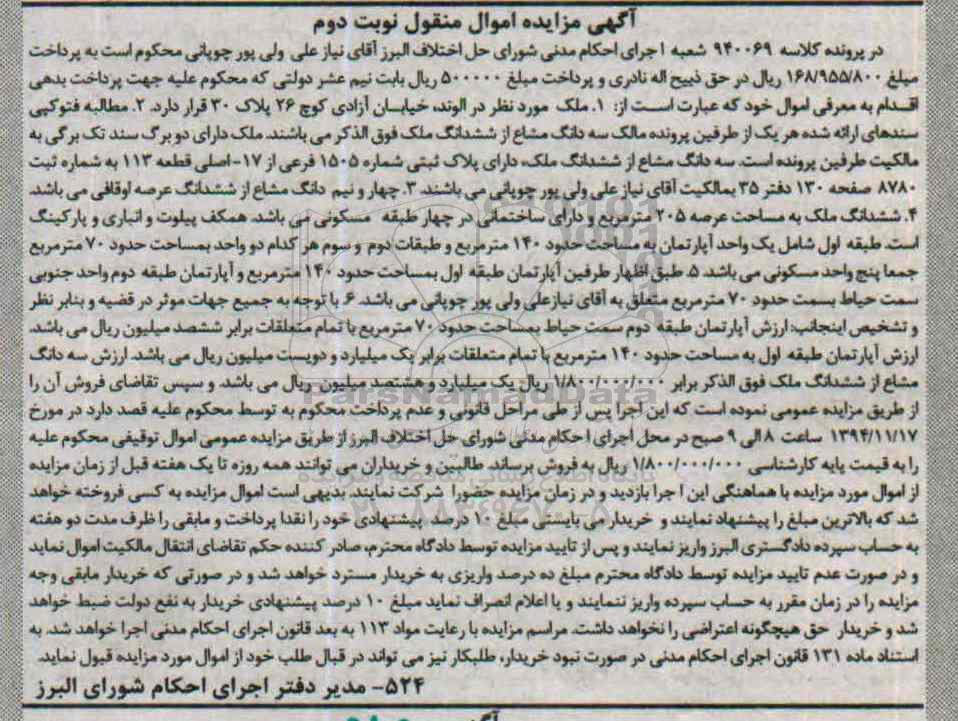 آگهی مزایده اموال منقول نوبت دوم
در پرونده کلاسه ۹۴۰۰۶۹ شعبه اجرای احکام مدنی شورای حل اختلاف البرز آقای نیاز علی ولی پور چوپانی محکوم است به پرداخت
مبلغ ۱۶۸/۹۵۵/۸۰۰ ریال در حق ذبیح اله نادری و پرداخت مبلغ ۵۰۰۰۰۰ ریال بابت نیم عشر دولتی که محکوم علیه جهت پرداخت بدهی
اقدام به معرفی اموال خود که عبارت است از: ۱. ملک مورد نظر در الوند، خیابان آزادی کوچ ۲۶ پلاک ۳۰ قرار دارد. ۲. مطالبه فتوکپی
سندهای ارائه شده هر یک از طرفین پرونده مالک سه دانگ مشاع از ششدانگ ملک فوق الذکر می باشند. ملک دارای دو برگ سند تک برگی به
مالکیت طرفین پرونده است. سه دانگ مشاع از ششدانگ ملک، دارای پلاک ثبتی شماره ۱۵۰۵ فرعی از ۱۷-اصلی قطعه ۱۱۳ به شماره ثبت
۸۷۸۰ صفحه ۱۳۰ دفتر ۳۵ بمالکیت آقای نیاز علی ولی پور چوپانی می باشند. ۳. چهار و نیم دانگ مشاع از ششدانگ عرصه اوقافی می باشد.
۴. ششدانگ ملک به مساحت عرصه ۲۰۵ مترمربع و دارای ساختمانی در چهار طبقه مسکونی می باشد. همکف پیلوت و انباری و پارکینگ
است. طبقه اول شامل یک واحد آپارتمان به مساحت حدود ۱۴۰ مترمربع و طبقات دوم و سوم هر کدام دو واحد بمساحت حدود ۷۰ مترمربع
جمعا پنج واحد مسکونی می باشد. ۵. طبق اظهار طرفین آپارتمان طبقه اول بمساحت حدود ۱۴۰ مترمربع و آپارتمان طبقه دوم واحد جنوبی
سمت حیاط بسمت حدود ۷۰ مترمربع متعلق به آقای نیازعلی ولی پور چوپانی می باشد. ۶. با توجه به جمیع جهات موثر در قضیه و بنابر نظر
و تشخیص اینجانب: ارزش آپارتمان طبقه دوم سمت حیاط بمساحت حدود ۷۰ مترمربع با تمام متعلقات برابر ششصد میلیون ریال می باشد.
ارزش آپارتمان طبقه اول به مساحت حدود ۱۴۰ مترمربع با تمام متعلقات برابر یک میلیارد و دویست میلیون ریال می باشد. ارزش سه دانگ
مشاع از ششدانگ ملک فوق الذکر برابر ۱/۸۰۰/۰۰۰/۰۰۰ ریال یک میلیارد و هشتصد میلیون ریال می باشد. و سپس تقاضای فروش آن را
از طریق مزایده عمومی نموده است که این اجرا پس از طی مراحل قانونی و عدم پرداخت محکوم به توسط محکوم علیه قصد دارد در مورخ
۱۳۹۴/۱۱/۱۷ ساعت ۸ الی ۹ صبح در محل اجرای احکام مدنی شورای حل اختلاف البرز از طریق مزایده عمومی اموال توقیفی محکوم علیه
را به قیمت پایه کارشناسی ۱/۸۰۰/۰۰۰/۰۰۰ ریال به فروش برساند. طالبین و خریداران می توانند همه روزه تا یک هفته قبل از زمان مزایده
از اموال مورد مزایده با هماهنگی این اجرا بازدید و در زمان مزایده حضورا شرکت نمایند. بدیهی است اموال مزایده به کسی فروخته خواهد
شد که بالاترین مبلغ را پیشنهاد نمایند و خریدار می بایستی مبلغ ۱۰ درصد پیشنهادی خود را نقدا پرداخت و مابقی را ظرف مدت دو هفته
به حساب سپرده دادگستری البرز واریز نمایند و پس از تایید مزایده توسط دادگاه محترم، صادر کننده حکم تقاضای انتقال مالکیت اموال نماید
و در صورت عدم تایید مزایده توسط دادگاه محترم مبلغ ده درصد واریزی به خریدار مسترد خواهد شد و در صورتی که خریدار مابقی وجه
مزایده را در زمان مقرر به حساب سپرده واریز ننمایند و یا اعلام انصراف نماید مبلغ ۱۰ درصد پیشنهادی خریدار به نفع دولت ضبط خواهد
شد و خریدار حق هیچگونه اعتراضی را نخواهد داشت. مراسم مزایده با رعایت مواد ۱۱۳ به بعد قانون اجرای احکام مدنی اجرا خواهد شد. به
استناد ماده ۱۳۱ قانون اجرای احکام مدنی در صورت نبود خریدار، طلبکار نیز می تواند در قبال طلب خود از اموال مورد مزایده قبول نماید.
۵۲۴- مدیر دفتر اجرای احکام شورای البرز
ParsNamadData